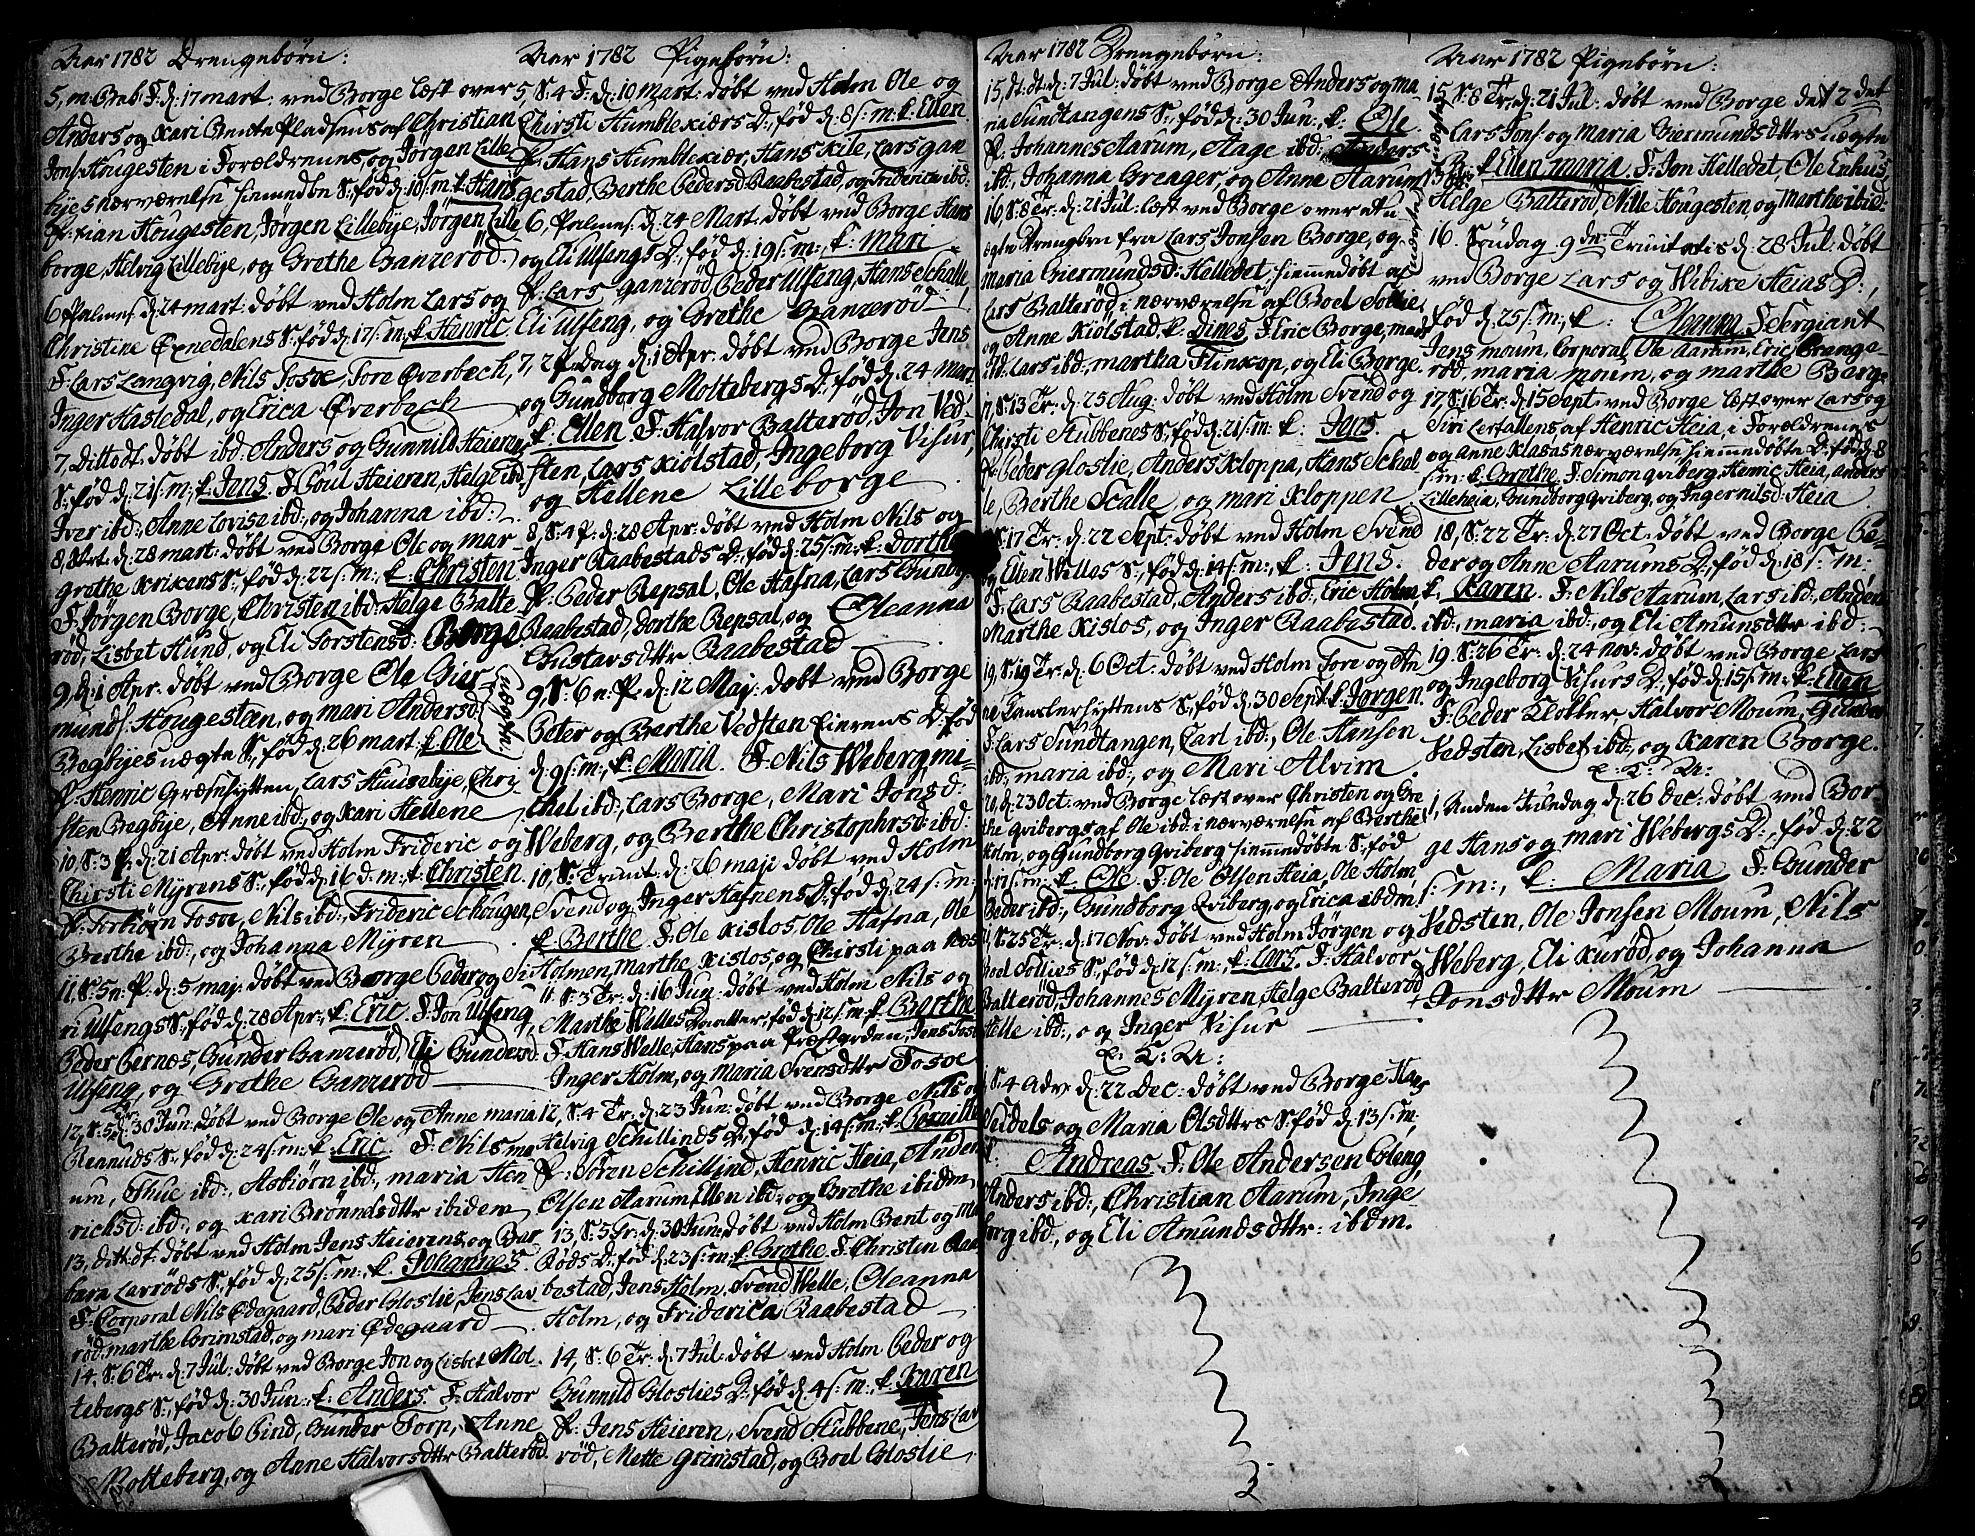 Aar 1782 Drengebörn:
5, m: Brub: F. d: 17 mart: ved Borge læst over
Anders og Kari Bente Pladsens af Christian
Jons: Hougesten i Forældrenes, og Jörgen Lille
byes nærværelse hiemmedbte S: föd d: 10 s: m: k: Hans
F: Xian Hougesten, Jörgen Lillebye, Jörgen Lille
borge, Helvig Lillebye, og Grethe Ganzeröd.
6 Palmes: d: 24 mart: döbt ved Holm Lars og
Christine Öxnedalens S: föd d: 17 s: m: k: Henric
F: Lars Langvig, Nils Tosoe, Tore Överbech,
Inger Hasledal, og Erica Överbech
7, Dittodt: döbt ibd: Anders og Gunnild Heieren
S: föd d: 21 s: m: k: Jens. F: Poul Heieren, Helge ibd:
Iver ibd: Anne Lovise ibd:, og Johanna ibd:
8, d: 28 mart: döbt ved Borge Ole og Mar-
grethe Krikens S: föd d: 22 s: m:, k: Christen
F: Jörgen Borge, Christen ibd: Helge Balte
röd, Lisbet Hund, og Eli Torstensd: Borge.
9, d: 1 Apr: döbt ved Borge Ole Gier
munds: Hougesteen, og mari Andersd:
Begbyes uægte S: föd d: 26 mart: k: Ole (uægte.)
F: Henric Græsehytten, Lars Huusebye, Chri
sten Begbye, Anne ibd:, og Kari Hellene
10 S: 3 P: d: 21 Apr: döbt ved Holm Frideric og
Chirsti Myrens S: föd d: 16 d: m: k: Christen
F: Torbiörn Tosoe, Nils ibd:, Frideric Schougen,
Berthe ibd:, og Johanna Myren
11, S: 5 n: P: d: 5 maj: döbt ved Borge Peder og Si
ri Ulfengs S: föd d: 28 Apr: k: Eric. F: Jon Ulfeng,
Peder Bernes, Gunder Ganzeröd, Eli Gundersd:
Ulfeng, og Grethe Ganzeröd
12, S: 5 Tr: d: 30 Jun: döbt ved Borge Ole og Anne maria
Oleanuds S: föd d: 24 s: m: k: Eric. F: Nils mo
um, Thue ibd:, Asbiörn ibd:, maria Hen
richsd: ibd:, og Kari Brönneldsdttr ibidem
13, dittdt: döbt ved Holm Jens Heierens, og Bar
bara Larröds S: föd d: 25 s: m: k: Johannes
F: Corporal Nils Ödegaard, Peder Gloslie, Jens Lar
röd, marthe Grimstad, og mari Ödegaard
14, S: 6 Tr: d: 7 Jul: döbt ved Borge Jon og Lisbet Mol-
tebergs S: föd d: 30 Jun: k: Anders. F: Halvor
Balteröd, Jacob Pind, Gunder Torp, Anne
Molteberg, og Anne Halvorsdttr Balteröd.
Aar 1782 Pigebörn:
5, S: 4 F: d: 10 Mart: döbt ved Holm Ole og
Chirsti Humblekiærs D: föd d: 8 s: m: k: Ellen
F: Hans Humblekiær, Hans Kile, Lars Gan
gestad, Berthe Pedersd Raabestad, og Friderica ibd:
6, Palmes: d: 24 Mart: döbt ved Borge Hans
og Eli Ulfengs D: föd d: 19 s: m:, k: Mari
F: Lars Ganzeröd, Peder Ulfeng, Hans Schalle,
Eli Ulfeng, og Grethe Ganzeröd
7, 2 P. Dag d: 1 Apr: döbt ved Borge Jens
og Gundborg Moltebergs D: föd d: 24 Mart
k: Ellen F: Halvor Balteröd, Jon Ved-
sten, Lars Kiölstad, Ingeborg Visur,
og Hellene Lilleborge
8, S: 4 P: d: 28 Apr: döbt ved Holm Nils og
Inger Raabestads D: föd d: 25 s: m: k: Dorthe
F: Peder Repsal, Ole Hafna, Lars Gunby
Raabestad, Dorthe Repsal, og Oleanna
Gustavsdttr Raabestad
9, S: 6 n: P: d: 12 Maj: döbt ved Borge
Peter og Berthe Vedsten Eierens D: föd
d: 9 s: m:, k: Maria. F: Nils Weberg, mi-
chel ibd:, Lars Borge, Mari Jonsd:
Weberg, og Berthe Christophrsd: ibd:
10, S: Trinit: d: 26 maji döbt ved Holm
Svend og Inger Hafnens D: föd d: 24 s: m:
k: Berthe F: Ole Kislos, Ole Hafna, Ole
Holmen, Marthe Kislos, og Chirsti paa Kos
11, S: 3 Tr: d: 16 Jun: döbt ved Holm Nils og
Marthe Welles Daatter, föd d: 12 s: m k: Berthe
F: Hans Welle, Hans paa Præstgrden, Jens Tosoe
Inger Holm, og Maria Svensdttr Tosoe
12, S: 4 Tr: d: 23 Jun: döbt ved Borge Nils og
Helvig Schillinds D: föd d: 14 s: m:, k: Pernille
F: Sören Schillind, Henric Heia, Anden
Olsen Aarum, Ellen ibd:, og Grethe ibidem
13, S: 5 Tr: d: 30 Jun: döbt ved Holm Bent og
Röds D: föd d: 23 s: m: k: Grethe. F: Christen Raa
bestad, Jens Holm, Svend Welle, Oleanna
Holm, og Friderica Raabestad
14, S: 6 Tr: d: 7 Jul: döbt ved Holm Peder og
Gunnild Gloslies D: föd d: 4 s: m:, k: Karen
F: Jens Heieren, Svend Stubbene, Jens Lar
röd, Mette Grimstad, og Boel Gloslie,
Aar 1782 Drengebörn:
15, dt: dt: d: 7 Jul: döbt ved Borge Anders og Ma-
ria Sundtangens S:, föd d: 30 Jun:, k: Ole.
F: Johannes Aarum, Aage ibd: Anders
ibd:, Johanna Greager, og Anne Aarum
16, S: 8 Tr: d: 21 Jul: læst ved Borge over et u
ægte Drengebrn fra Lars Jonsen Borge, og
maria Giermundsd: Helledet hiemmedöbt af (uægte)
Lars Balteröd, i nærværelse af Boel Sollie
og Anne Kiölstad, k: Dines F: Eric Borge, mart
ibd: Lars ibd:, martha Flinkop, og Eli Borge.
17, S: 13 Tr: d: 25 Aug: döbt ved Holm Svend og
Chirsti Stubbenes S:, föd d: 21 s: m: k: Jens.
F: Peder Gloslie, Anders Kloppa, Hans Schal
le, Berthe Scalle, og mari Kloppen
S: 17 Tr: d: 22 Sept: döbt ved Holm Svend
og Ellen Wellas S:, föd d: 14 s: m:, k: Jens.
F: Lars Raabestad, Anders ibd:, Eric Holm,
Marthe Kislos, og Inger Raabestad.
19, S: 19 Tr: d: 6 Oct: döbt ved Holm Tore og An
ne Kanslerhyttens S:, föd d: 30 Sept: k: Jörgen.
F: Lars Sundtangen, Carl ibd:, Ole Hansen
ibd:, maria ibd:, og Mari Alvim
20, d: 23 Oct: ved Borge læst over Christen og Gre
the Qvibergs af Ole ibd: i nærværelse af Berthe
Holm, og Gundborg Qviberg hiemmedöbte S:, föd
d: 17 s: m: k: Ole F: Ole Olsen Heia, Ole Holm,
Peder ibd:, Gundborg Qviberg, og Erica ibdm,
S: 25 Tr: d: 17 Nov: döbt ved Holm Jörgen og
Boel Sollies S:, föd d: 12 s: m:, k: Lars. F: Halvor
Balteröd, Johannes Myren, Helge Balteröd
Helle ibd:, og Inger Visur
E: K: A:
S: 4 Adv d: 22 Dec: döbt ved Borge Hans
Seidels og Maria Olsdttrs S: föd d: 13 s: m,
k: Andreas. F: Ole Andersen Eleng,
Anders ibd:, Christian Aarum, Inge
borg ibd:, og Eli Amundsdttr: ibdm.
Aar 1782 Pigebörn:
15 S: 8 Tr: d: 21 Jul: döbt ved Borge det 2 det
Lars Jons: og Maria Giermundsdttrs uægte (uægte)
k: Ellen Maria. F: Jon Helledet, Ole Enhus,
Helge Balteröd, Nille Hougesten, og Marthe ibid:
16. Söndag 9de Trinitatis d: 28 Jul: döbt
ved Borge Lars og Wibike Heias D:,
föd d: 25 s: m:, k: Oleanna F: Sergiant
Jens moum, Corporal Ole Aarum, Eric Grange-
röd, maria moum, og marthe Berge
17, S: 16 Tr: d: 15 Sept: ved Borge læst over Lars og
Siri Lertallens af Henric Heia, i Forældrenes
og Anne Klasas nærværelse hiemmedöbte D: föd d: 8
s: m: k: Grethe. F: Simon Qviberg, Henric Heia, Anders
Lilleheia, Gundborg Qviberg, og Inger Nilsd: Heia
18, S: 22 Tr: d: 27 Oct: döbt ved Borge Pe-
der og Anne Aarums D:, föd d: 18 s: m,
k: Karen. F: Nils Aarum, Lars ibd:, Anden
ibd:, maria ibd:, og Eli Amunsdttr ibd:
19. S: 26 Tr: d: 24 nov: döbt ved Borge Lars
og Ingeborg Visurs D: föd d: 15 s: m: k: Ellen
F: Peder Klokker, Halvor Moum, Gunder
Vedsten, Lisbet ibd:, og Karen Borge.
E: K: A:
1, Anden Juledag d: 26 Dec: döbt ved Bor
ge Hans og mari Webergs D:, föd d: 22
s: m:, k: Maria F: Gunder
Vedsten, Ole Jonsen Moum, Nils
Weberg, Eli Kuröd, og Johanna
Jonsdttr Moum